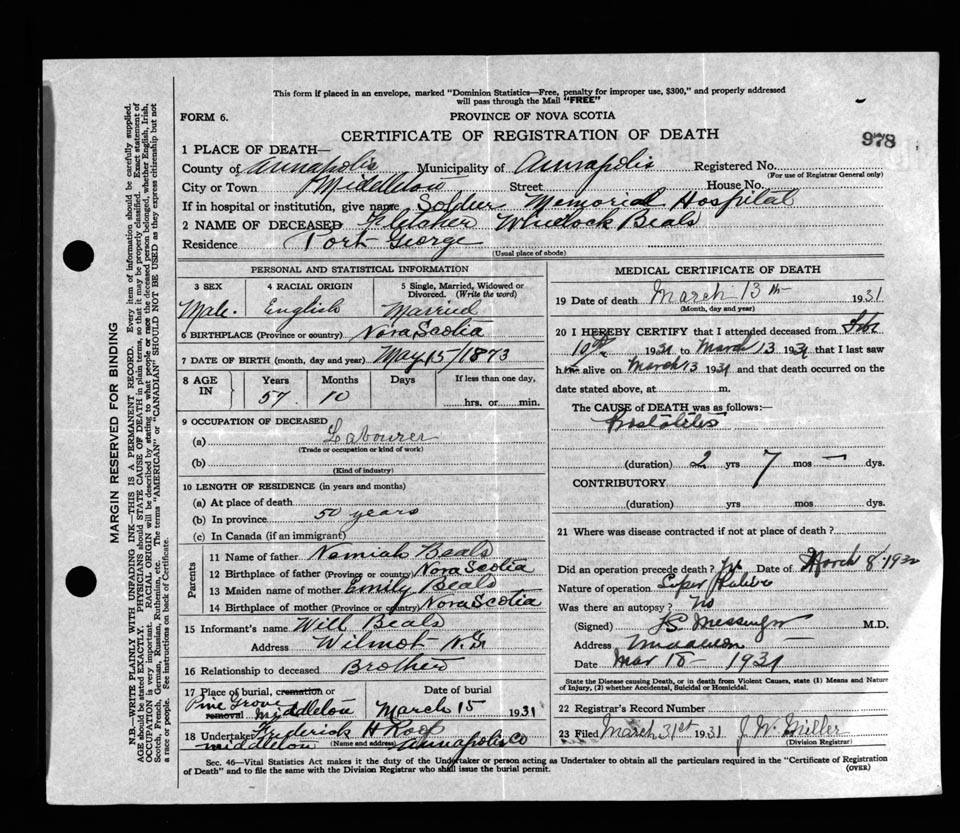 This form if placed in an envelope, marked "Dominion Statistics—Free, penalty for improper use, $300," and properly addressed
will pass through the Mail "FREE"
FORM 6.
PROVINCE OF NOVA SCOTIA
CERTIFICATE OF REGISTRATION OF DEATH
978
1 PLACE OF DEATH—
County of Annapolis Municipality of Annapolis Registered No.
(For use of Registrar General only)
City or Town Middleton Street House No.
If in hospital or institution, give name Soldier Memorial Hospital
2 NAME OF DECEASED Fletcher Beals
Residence Port George
(Usual place of abode)
PERSONAL AND STATISTICAL INFORMATION
3 SEX 4 RACIAL ORIGIN 5 Single, Married, Widowed or Divorced. (Write the word)
Male. English Married
6 BIRTHPLACE (Province or country) Nova Scotia
7 DATE OF BIRTH (month, day and year) May 15/1873
8 AGE IN Years Months Days If less than one day,
57. 10 hrs. or min.
9 OCCUPATION OF DECEASED
(a) Labourer
(Trade or occupation or kind of work)
(b)
(Kind of industry)
10 LENGTH OF RESIDENCE (in years and months)
(a) At place of death
(b) In province 50 years
(c) In Canada (if an immigrant)
Parents
11 Name of father Nemiah Beals
12 Birthplace of father (Province or country) Nova Scotia
13 Maiden name of mother Emily Beals
14 Birthplace of mother (Province or country) Nova Scotia
15 Informant's name Will Beals
Address Wilmot N.S
16 Relationship to deceased Brother
17 Place of burial, cremation or removal Pine Grove Middleton
Date of burial March 15 1931
18 Undertaker Frederick H Roop
Middleton (Name and address) Annapolis Co
MEDICAL CERTIFICATE OF DEATH
19 Date of death March 13th 1931
(Month, day and year)
20 I HEREBY CERTIFY that I attended deceased from Feb
10th 1931 to March 13 1931 that I last saw
him alive on March 13 1931 and that death occurred on the
date stated above, at m.
The CAUSE of DEATH was as follows:—
Prostatitis
(duration) 2 yrs 7 mos — dys.
CONTRIBUTORY
(duration) yrs. mos. dys.
21 Where was disease contracted if not at place of death?
Did an operation precede death? Date of March 8
Nature of operation
Was there an autopsy? No
(Signed) Messenger M.D.
Address Middleton
Date Mar 15 - 1931
State the Disease causing Death, or in death from Violent Causes, state (1) Means and Nature
of Injury, (2) whether Accidental, Suicidal or Homicidal.
22 Registrar's Record Number
23 Filed March 31st 1931 J. W. Miller
(Division Registrar)
Sec. 46—Vital Statistics Act makes it the duty of the Undertaker or person acting as Undertaker to obtain all the particulars required in the "Certificate of Registration
of Death" and to file the same with the Division Registrar who shall issue the burial permit.
(OVER)
MARGIN RESERVED FOR BINDING
N.B.—WRITE PLAINLY WITH UNFADING INK—THIS IS A PERMANENT RECORD. Every item of information should be carefully supplied.
AGE should be stated EXACTLY. PHYSICIANS should STATE CAUSE OF DEATH in plain terms, so that it may be properly classified. Exact statement of
OCCUPATION is very important. RACIAL ORIGIN will be described by stating to what people or race the deceased person belonged, whether English, Irish,
Scotch, French, German, Russian, Ruthenian, etc. The terms "AMERICAN" or "CANADIAN" SHOULD NOT BE USED as they express citizenship but not
a race or people. See instructions on back of Certificate.